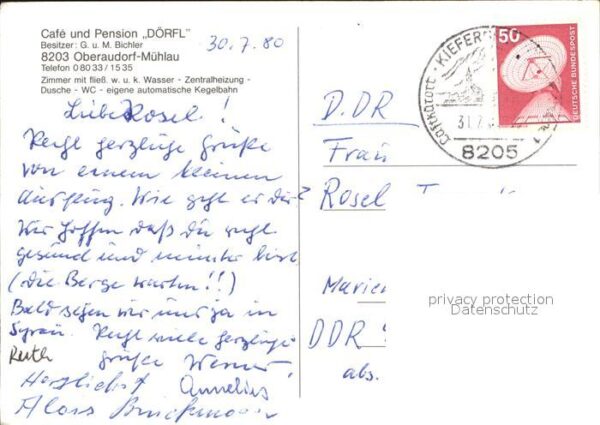 Café und Pension „DÖRFL"
Besitzer: G. u. M. Bichler
8203 Oberaudorf-Mühlau
Telefon 0 80 33 / 15 35
Zimmer mit fließ. w. u. k. Wasser - Zentralheizung -
Dusche - WC - eigene automatische Kegelbahn
30.7.80
Liebe Rosel!
Recht herzliche Grüße
von einem kleinen
Ausflug. Wie geht es dir?
Wir hoffen daß du recht
gesund und munter bist
(die Berge warten!!)
Bald sehen wir uns ja in
Syrau. Recht viele herzliche
Grüße Werner
Ruth
Herzlichst Annelies
Alois
50
DEUTSCHE BUNDESPOST
Luftkurort · KIEFER
31.7.
8205
D.DR
Frau
Rosel
Marien
DDR
abs.
privacy protection
Datenschutz